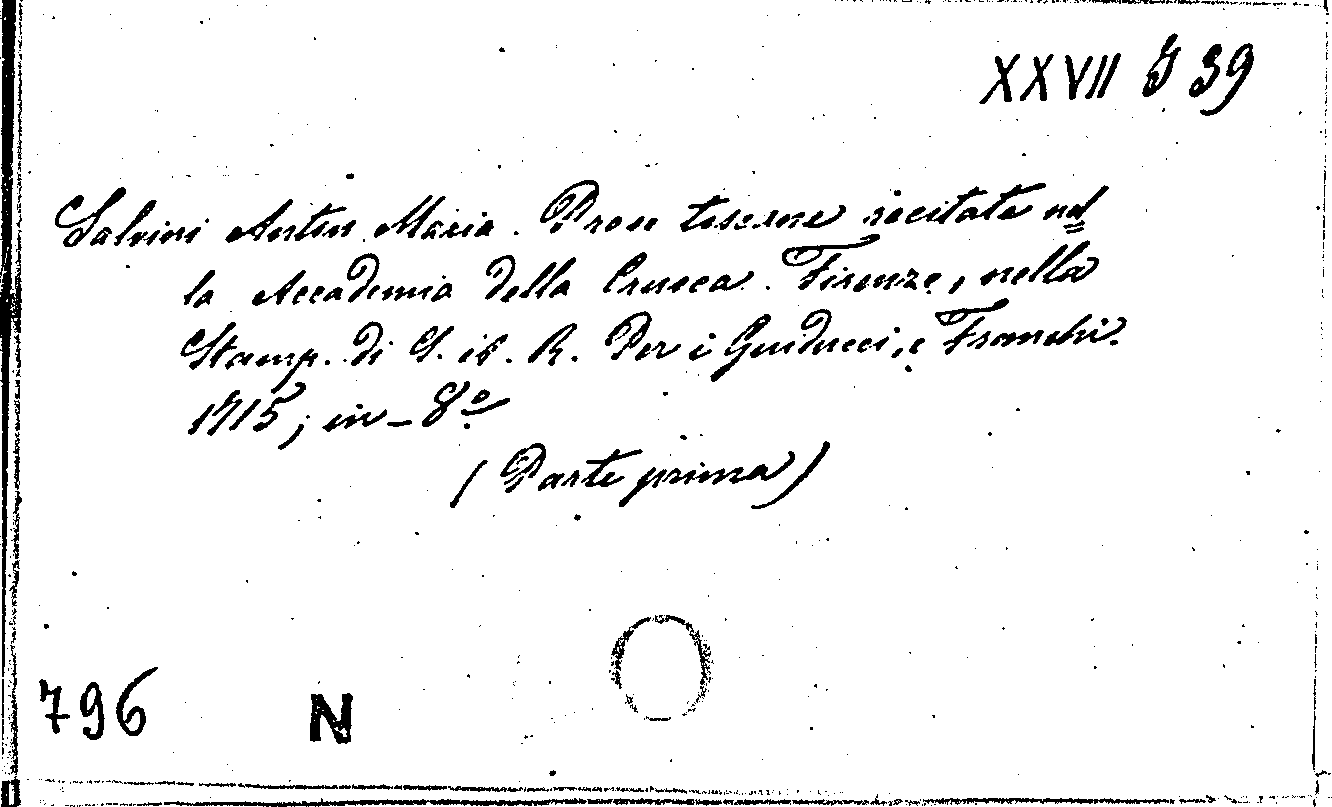 XXVII J 39
Salvini Anton Maria. Prose toscane recitate nel=
la Accademia della Crusca. Firenze, nella
Stamp. di S. A. R. Per i Guiducci, e Franchi.
1715; in-8º
(Parte prima)
796 N